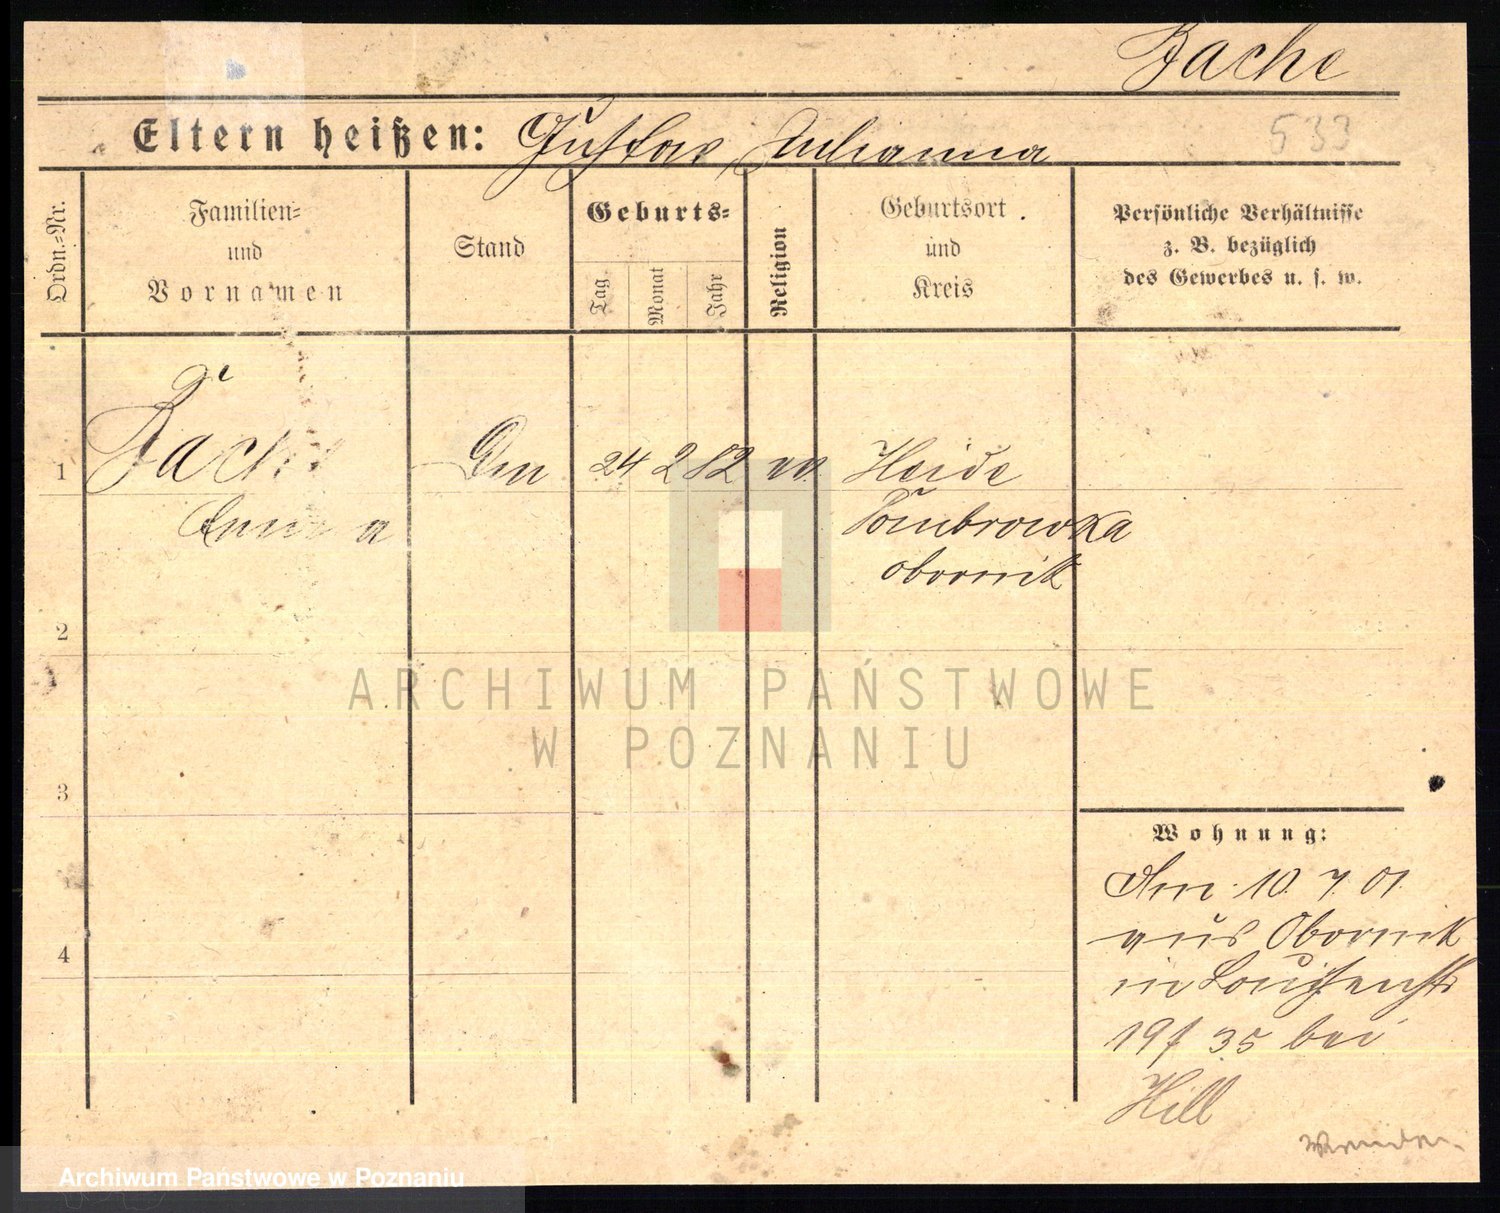 Zache
533
Eltern heißen: Gustav, Julianna
Ordn.=Nr.
Familien=
und
Vornamen
Stand
Geburts=
Tag
Monat
Jahr
Religion
Geburtsort
und
Kreis
Persönliche Verhältnisse
z. B. bezüglich
des Gewerbes u. s. w.
1
24 2 82
Heide
Dombrowka
Obornik
2
ARCHIWUM PAŃSTWOWE
W POZNANIU
3
Wohnung:
Am 10. 7. 01.
4
aus Obornik
in
35 bei
Hill
Wenden
Archiwum Państwowe w Poznaniu